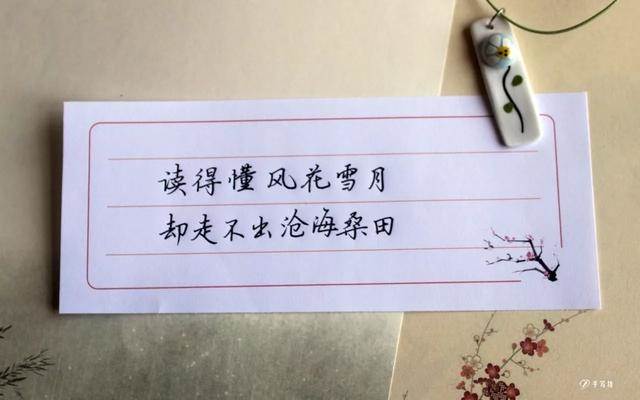 读得懂风花雪月
却走不出沧海桑田
手写体